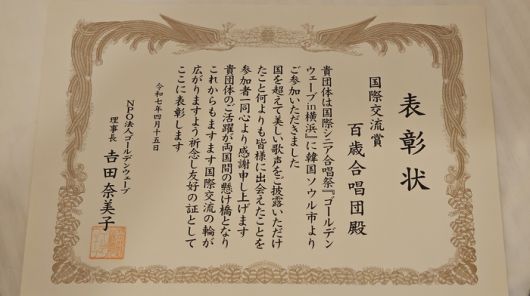 表彰状
国際交流賞
百歳合唱団殿
貴団体は国際シニア合唱祭『ゴールデン
ウェーブin横浜』に韓国ソウル市より
ご参加いただきました
国を超えて美しい歌声をご披露いただけ
たこと何よりも皆様に出会えたことを
参加者一同心より感謝申し上げます
貴団体のご活躍が両国間の懸け橋となり
これからもますます国際交流の輪が
広がりますよう祈念し友好の証として
ここに表彰します
令和七年四月十五日
NPO法人ゴールデンウェーブ
理事長 吉田奈美子